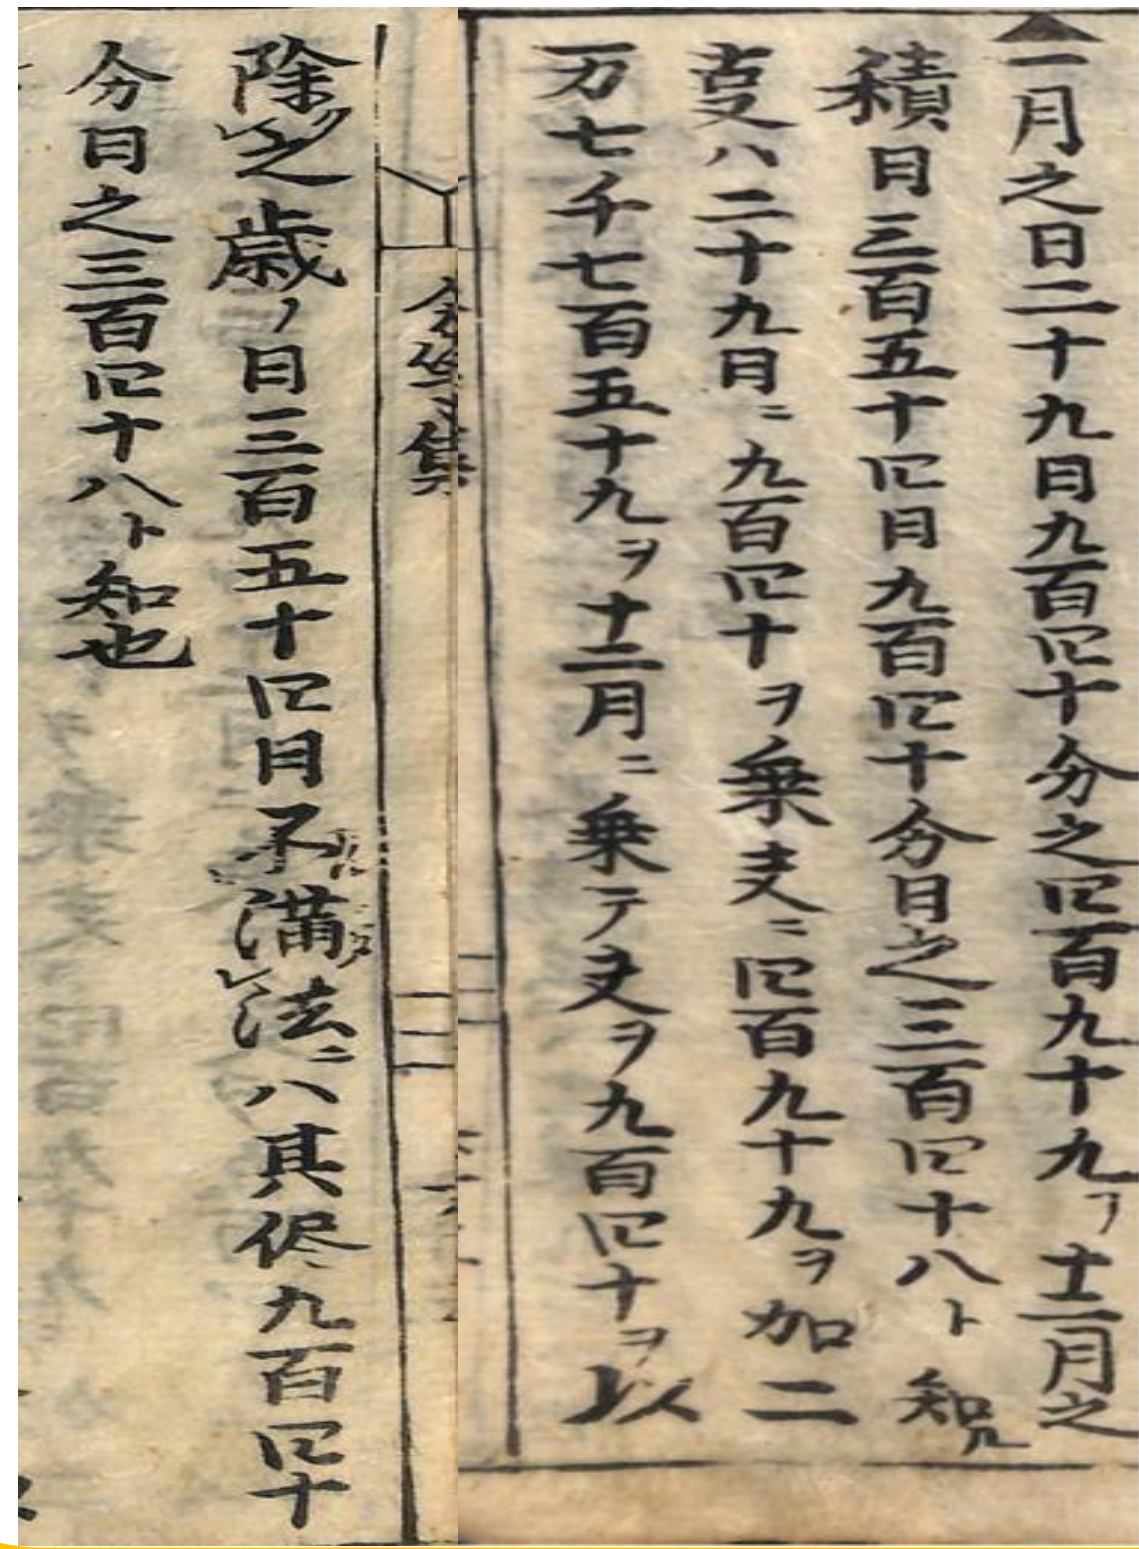 一月之日二十九日九百四十分之四百九十九ヲ十二月之
積日三百五十四日九百四十分日之三百四十八ト知ル
叓ハ二十九日ニ九百四十ヲ乗ニ四百九十九ヲ加二
万七千七百五十九ヲ十二月ニ乗テヲ九百四十ヲ以
集
除之歳ノ日三百五十四日不満法ニハ其侭九百四十
分日之三百四十八ト知也